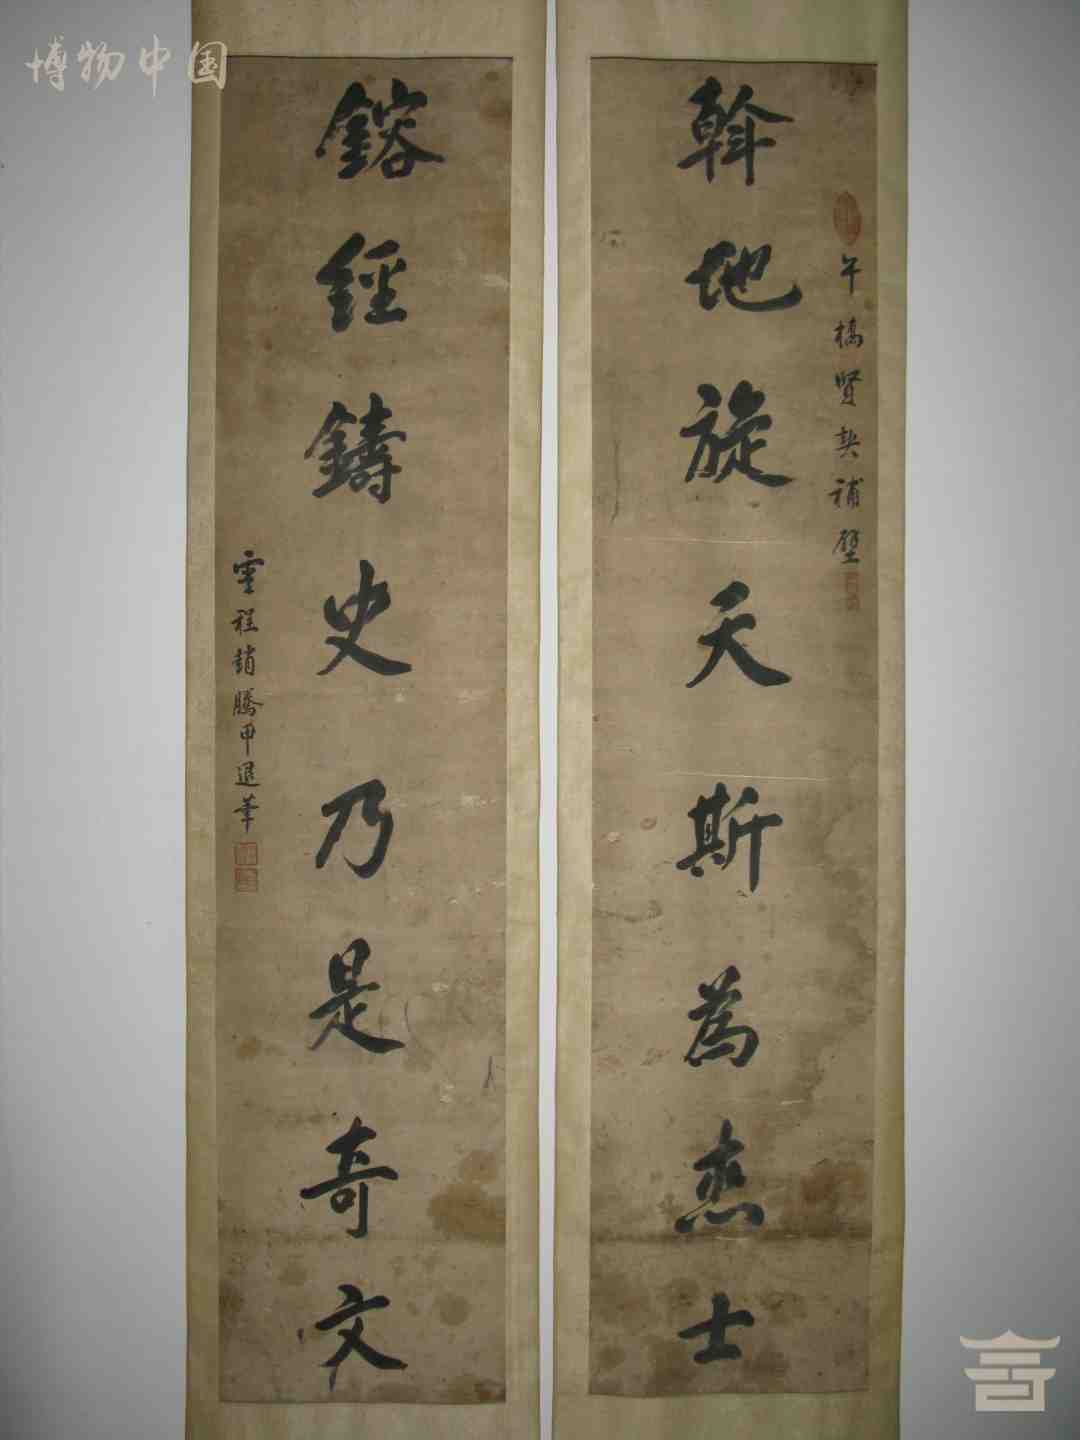 博物中国
午橋賢契補壁
斡地旋天斯為杰士
鎔經鑄史乃是奇文
雲程趙騰甲退筆